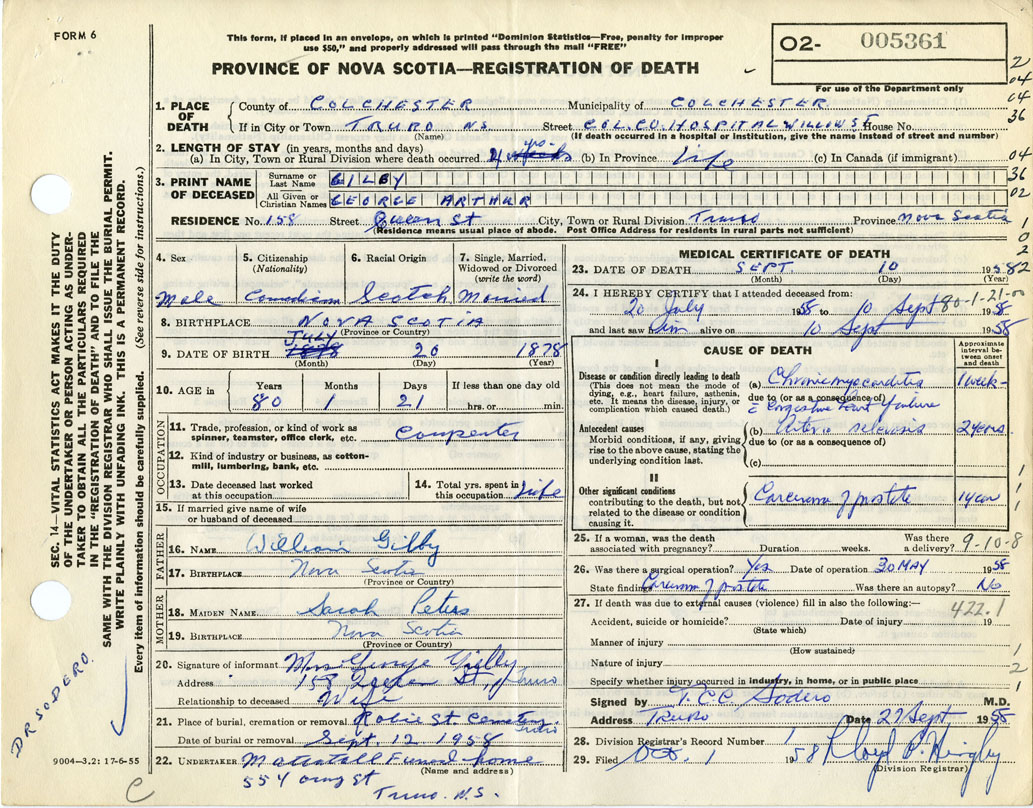 FORM 6
This form, if placed in an envelope, on which is printed "Dominion Statistics—Free, penalty for improper
use $50," and properly addressed will pass through the mail "FREE"
PROVINCE OF NOVA SCOTIA—REGISTRATION OF DEATH
O2- 005361
For use of the Department only
2
04
04
36
1. PLACE OF DEATH County of COLCHESTER Municipality of COLCHESTER
If in City or Town TRURO N.S. Street COL. CO. HOSPITAL WILLOW ST House No.
(Name) (If death occurred in a hospital or institution, give the name instead of street and number)
2. LENGTH OF STAY (in years, months and days)
(a) In City, Town or Rural Division where death occurred 4 yrs. (b) In Province Life (c) In Canada (if immigrant)
04
3. PRINT NAME OF DECEASED Surname or Last Name GILBY
36
All Given or Christian Names GEORGE ARTHUR
02
RESIDENCE No. 158 Street Queen St City, Town or Rural Division Truro Province Nova Scotia
(Residence means usual place of abode. Post Office Address for residents in rural parts not sufficient)
1
0
2
2
4. Sex Male
5. Citizenship (Nationality) Canadian
6. Racial Origin Scotch
7. Single, Married, Widowed or Divorced (write the word) Married
8. BIRTHPLACE NOVA SCOTIA
(Province or Country)
9. DATE OF BIRTH JULY 20 1878
(Month) (Day) (Year)
10. AGE in Years 80 Months 1 Days 21 If less than one day old hrs. or min.
OCCUPATION
11. Trade, profession, or kind of work as spinner, teamster, office clerk, etc. Carpenter
12. Kind of industry or business, as cotton-mill, lumbering, bank, etc.
13. Date deceased last worked at this occupation
14. Total yrs. spent in this occupation Life
15. If married give name of wife or husband of deceased
FATHER
16. NAME William Gilby
17. BIRTHPLACE Nova Scotia
(Province or Country)
MOTHER
18. MAIDEN NAME Sarah Peters
19. BIRTHPLACE Nova Scotia
(Province or Country)
20. Signature of informant Mrs. George Gilby
Address 158 Queen St., Truro
Relationship to deceased Wife
21. Place of burial, cremation or removal Robie St. Cemetery, Truro
Date of burial or removal Sept. 12 1958
22. UNDERTAKER Mattatall Funeral home
(Name and address)
Truro. N.S.
MEDICAL CERTIFICATE OF DEATH
23. DATE OF DEATH SEPT. 10 1958
(Month) (Day) (Year)
24. I HEREBY CERTIFY that I attended deceased from:
80-1-21-00
20 July 1958 10 Sept 1958
and last saw him alive on 10 Sept 1958
CAUSE OF DEATH
Approximate interval between onset and death
I
Disease or condition directly leading to death
(This does not mean the mode of dying, e.g., heart failure, asthenia, etc. It means the disease, injury, or complication which caused death.)
(a) Chronic myocarditis 1 week
due to (or as a consequence of)
c̄ Congestive heart failure
Antecedent causes
Morbid conditions, if any, giving rise to the above cause, stating the underlying condition last.
(b) Arterio sclerosis 2 years
due to (or as a consequence of)
(c)
II
Other significant conditions
contributing to the death, but not related to the disease or condition causing it.
Carcinoma of prostate 1 year
25. If a woman, was the death associated with pregnancy? Duration weeks. Was there a delivery?
9-10-8
26. Was there a surgical operation? Yes Date of operation 30 MAY 1958
State findings Carcinoma of prostate Was there an autopsy? No
27. If death was due to external causes (violence) fill in also the following:—
422.1
Accident, suicide or homicide? Date of injury 19
(State which)
Manner of injury
(How sustained)
Nature of injury
Specify whether injury occurred in industry, in home, or in public place
Signed by T. C. C. Sodero M.D.
Address TRURO Date 27 Sept 1958
28. Division Registrar's Record Number
29. Filed Oct. 1 1958 Lloyd P. Hingley
(Division Registrar)
SEC. 14—VITAL STATISTICS ACT MAKES IT THE DUTY
OF THE UNDERTAKER OR PERSON ACTING AS UNDER-
TAKER TO OBTAIN ALL THE PARTICULARS REQUIRED
IN THE "REGISTRATION OF DEATH" AND TO FILE THE
SAME WITH THE DIVISION REGISTRAR WHO SHALL ISSUE THE BURIAL PERMIT.
WRITE PLAINLY WITH UNFADING INK. THIS IS A PERMANENT RECORD.
Every item of information should be carefully supplied. (See reverse side for instructions.)
DR SODERO
9004—3.2: 17-6-55
C